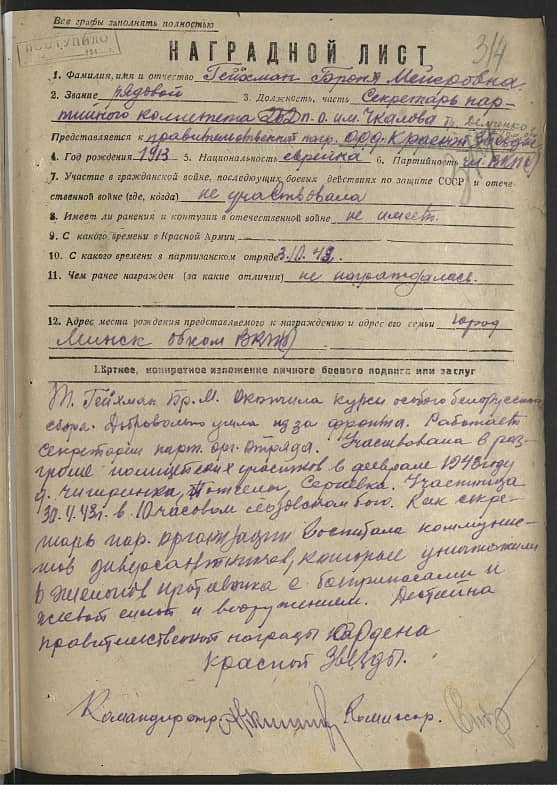 Все графы заполнять полностью
ПОСТУПИЛО
314
НАГРАДНОЙ ЛИСТ
1. Фамилия, имя и отчество Гейхман Броня Мейеровна
2. Звание рядовой 3. Должность, часть Секретарь пар-
тийного комитета п.о. им. Чкалова
Представляется к правительственной наг. Орд. Красной Звезды
4. Год рождения 1913 5. Национальность еврейка 6. Партийность чл. ВКП(б)
7. Участие в гражданской войне, последующих боевых действиях по защите СССР и отече-
ственной войне (где, когда) не участвовала
8. Имеет ли ранения и контузии в отечественной войне не имеет.
9. С какого времени в Красной Армии
10. С какого времени в партизанском отряде
11. Чем ранее награжден (за какие отличия) не награждалась.
12. Адрес места рождения представляемого к награждению и адрес его семьи город
Минск обком ВКП(б)
I. Кртнее, конкретное изложение личного боевого подвига или заслуг
Т. Гейхман Бр. М. Окончила курсы особого белорусского
сбора. Добровольно ушла из за фронта. Работает
секретарем парт. орг. отряда. Участвовала в раз-
громе полицейских участков в феврале 1943 году
д. Чигиринка, Сергеевка. Участница
в 10 часовом бою. Как секре-
тарь пар. организации воспитала коммунис-
тов диверсантов, которые уничтожили
6 эшелонов противника с боеприпасами и
живой силой и вооружением. Достойна
правительственной награды ордена
Красной Звезды.
Командир отр. Комиссар.